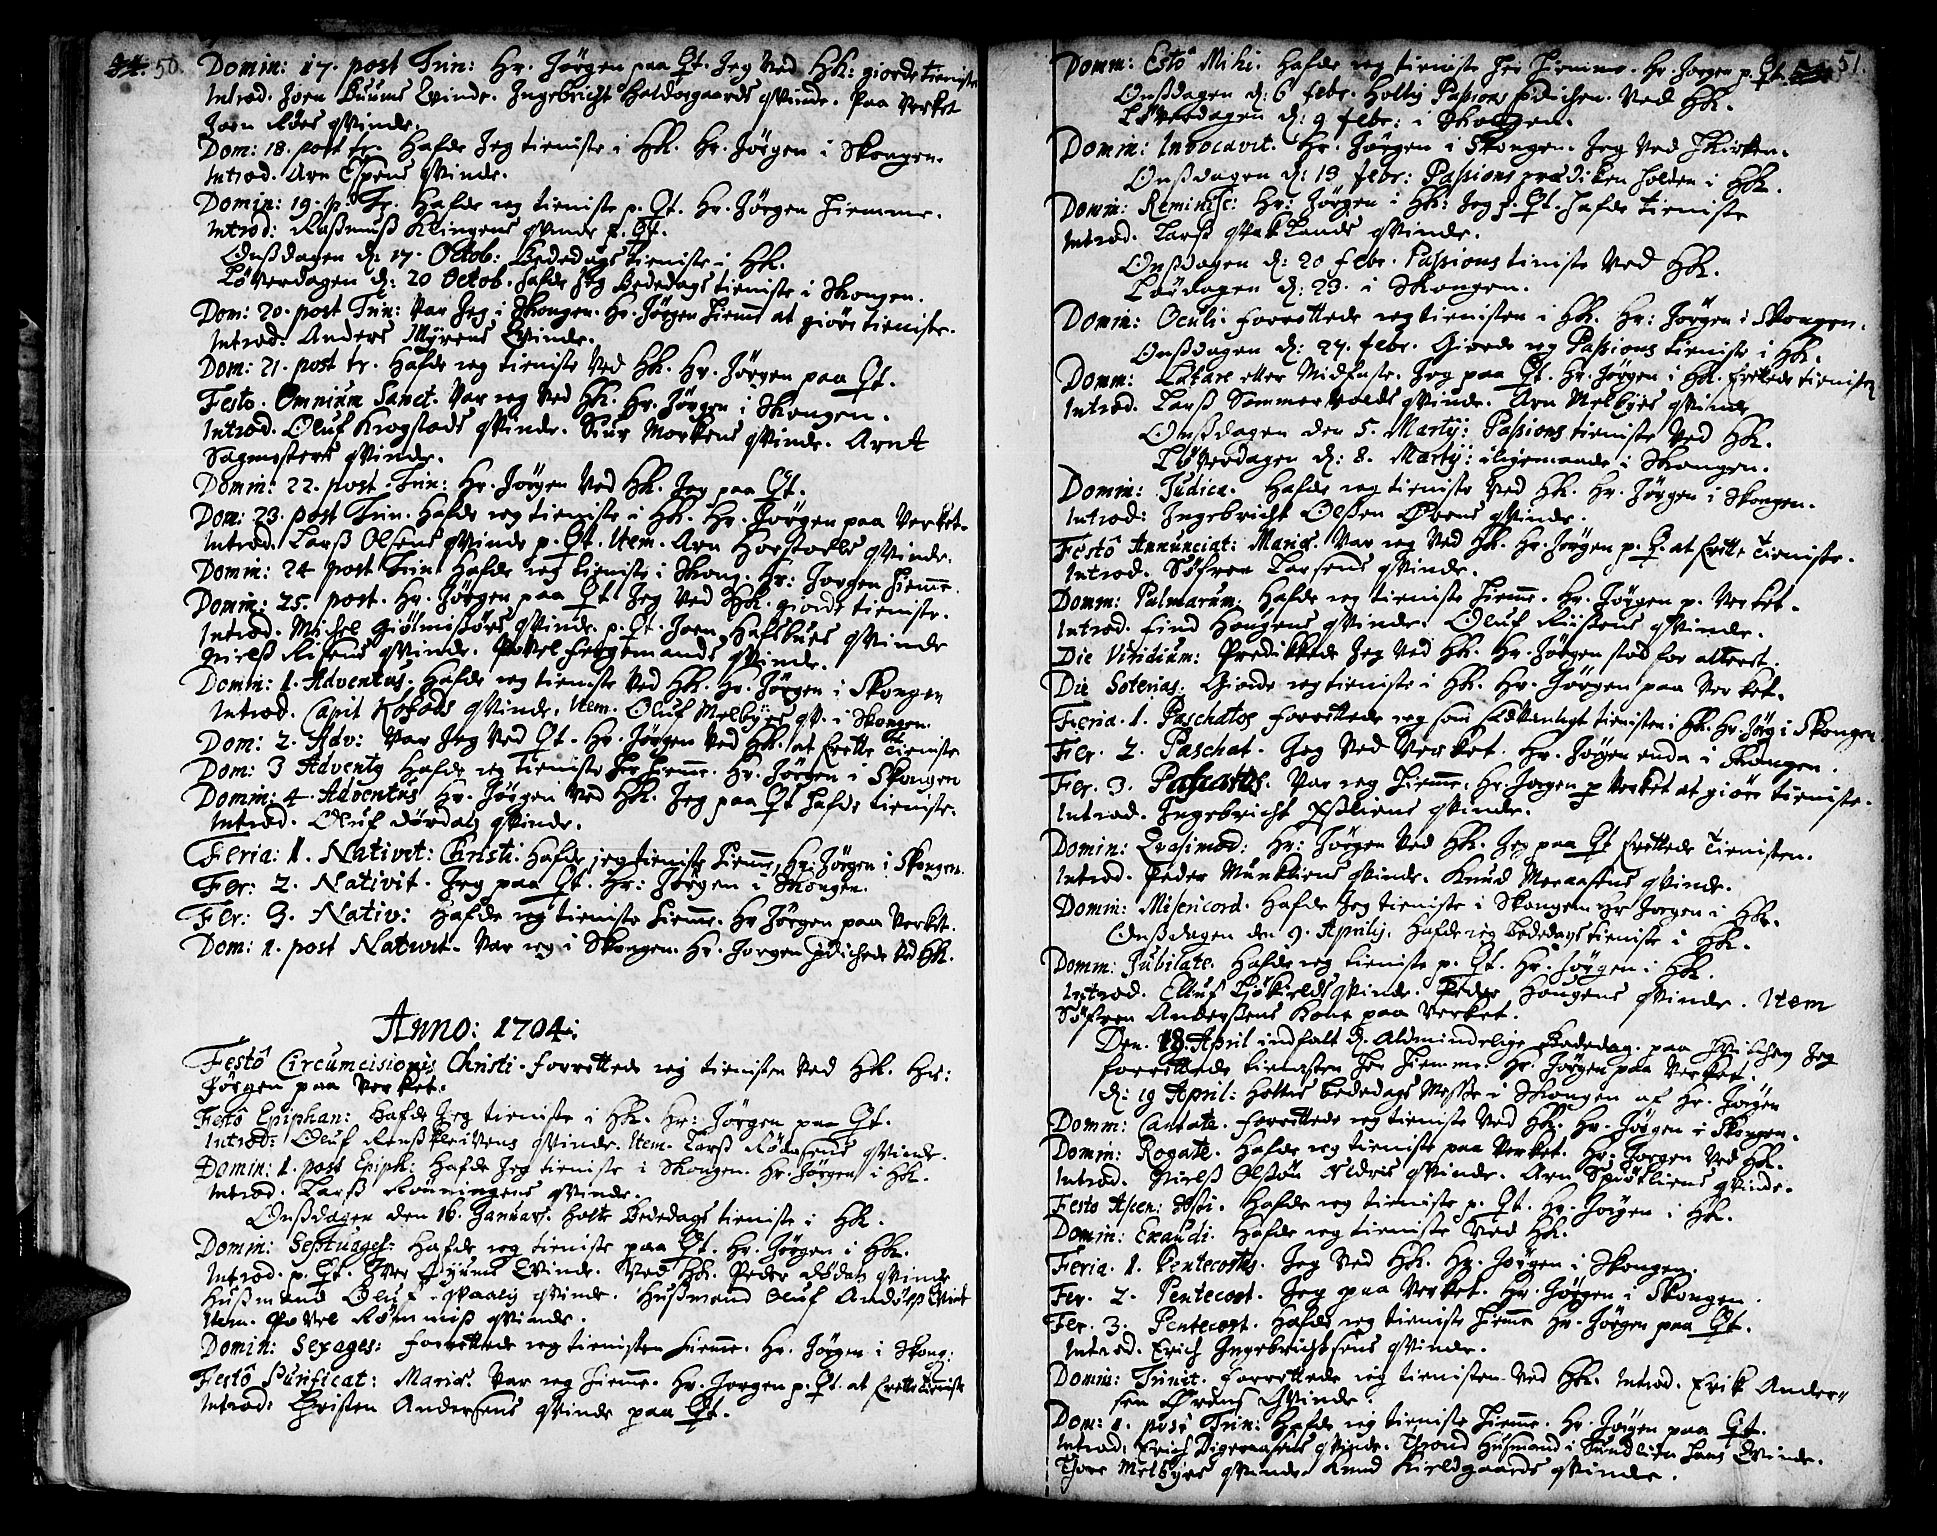 50.
Domin: 17. post Trin: Hr. Jørgen paa Qt. Jeg ved HK: giorde tieniste
Introd. Joen Buums Qvinde. Ingebricht Haldorgaards Qvinde. Paa Verket
Joen Roes Qvinde.
Dom: 18. post tr. Hafde Jeg tieniste i HK. Hr. Jørgen i Skongen.
Introd. Arn Espens Qvinde.
Domin: 19. p. Tr. Hafde ieg tieniste p. Qt. Hr. Jørgen hiemme.
Introd: Rasmuss Klingens Qvinde p. Qt.
Onssdagen d: 17. Octob: Bededags tieniste i HK.
Løverdagen d: 20 Octob. hafde Jeg Bededags tieniste i Skongen.
Dom: 20. post Trin: Var Jeg i Skongen. Hr. Jørgen hiemme at giøre tieniste.
Introd. Anders Myrens Qvinde.
Dom: 21. post tr. Hafde ieg tieniste ved HK. Hr. Jørgen paa Qt.
Festo. Omnium Sanct. Var ieg ved HK. Hr. Jørgen i Skongen.
Introd. Oluf Krogstads Qvinde. Siur Morkens Qvinde. Arnt
Sagmesters Qvinde.
Domin: 22. post. Trin: Hr. Jørgen ved HK. Jeg paa Qt.
Dom: 23. post Trin. Hafde ieg tieniste i HK. Hr. Jørgen paa Verket.
Introd. Larss Olsens Qvinde p. Qt. Item. Arn Qvinde.
Domin: 24 post Trin Hafde ieg tieniste i Skong. Hr: Jørgen hiemme.
Domin: 25. post. Hr. Jørgen paa Qt. Jeg ved HK. giorde tieniste.
Introd. Michel Qvinde. p. Qt. Joen Qvinde
Nielss Qvinde. Povel Qvinde.
Domin: 1. Adventus. Hafde ieg tieniste ved HK. Hr. Jørgen i Skongen
Introd. Capit Qvinde. Item. Oluf Melbyes Qv. i Skongen.
Dom: 2. Adv: Var Jeg ved Qt. Hr. Jørgen ved HK. at forrette Tieniste
Dom: 3 Adventg Hafde ieg Tieniste her hiemme. Hr. Jørgen i Skongen
Domin: 4. Adventus Hr. Jørgen ved HK. Jeg paa Qt hafde tieniste.
Introd. Oluf Dørdals Qvinde.
Feria: 1. Nativit: Christi. Hafde jeg tieniste hiemme, Hr: Jørgen i Skongen.
Fer: 2. Nativit. Jeg paa Qt. Hr: Jørgen i Skongen.
Fer: 3. Nativ: Hafde ieg tieniste hiemme. Hr Jørgen paa Verket.
Dom: 1. post Nativit. Var ieg i Skongen. Hr. Jørgen prædichede ved HK.
Anno: 1704:
Festô Circumcisionis Christi. forrettede ieg tienisten ved HK. Hr:
Jørgen paa Verket.
Festô Epiphan: Hafde Jeg tieniste i HK. Hr: Jørgen paa Qt.
Introd: Oluf Qvinde. Item. Larss Rødasens Qvinde.
Domin: 1. post Epiph: Hafde Jeg tieniste i Skongen. Hr. Jørgen i HK.
Introd. Larss Rønningens Qvinde.
Onssdagen den 16. Januarj. holte Bededags tieniste i HK.
Domin: Septuages: Hafde ieg tieniste paa Qt. Hr. Jørgen i HK.
Introd. p. Qt. Qvinde. Ved HK. Peder Qvinde
Hussmand Oluf Qvinde. Hussmand Oluf Qvind
Item. Povel Qvinde.
Domin: Sexages: forrettede ieg tienisten hiemme. Hr. Jørgen i Skong:
Festô Purificat: Mariæ. Var ieg hiemme. Hr. Jørgen p. Qt. at forrette Tieniste
Introd: Christen Andersens Qvinde paa Qt.
51.
Domin: Estô Mihi. Hafde ieg tieniste her hiemme. Hr Jørgen p. Qt.
Onssdagen d: 6 febr. Holtes Passions prædichen. Ved HK.
Løverdagen d: 9 febr: i Skongen.
Domin: Invocavit. Hr. Jørgen i Skongen. Jeg ved HKirken.
Onssdagen d: 13 febr: Passions prædiken holden i HK.
Domin: Reminisc: Hr: Jørgen i HK: Jeg p. Qt. hafde tieniste
Introd. Larss Qvinde.
Onssdagen d: 20 febr. Passions tieniste ved HK.
Løvdagen d: 23. i Skongen.
Domin: Oculi. forrettede ieg tienisten i HK. Hr: Jørgen i Skongen.
Onssdagen d: 27. febr. Giorde ieg Passions tieniste i HK.
Domin: Lætare eller Midfaste. Jeg paa Qt. Hr. Jørgen i HK. forrettede tieniste
Introd. Larss Sommervolds Qvinde. Arn Melbyes Qvinde
Onssdagen den 5. Martij: Passions tieniste ved HK.
Løverdagen d: 8. Martij: iligemaade i Skongen.
Domin: Judica. Hafde ieg tieniste ved HK. Hr. Jørgen i Skongen.
Introd: Ingebricht Olssen Qvinde.
Festô Annunciat: Mariæ. Var ieg ved HK. Hr. Jørgen p. Q. at forrette Tieniste.
Introd. Søfren Larsens Qvinde.
Domin: Palmarum. Hafde ieg tieniste hiemme. Hr. Jørgen p. Verket.
Introd. Eind Hougens Qvinde. Oluf Qvinde.
Die Viridium: Predikkede Jeg ved HK. Hr. Jørgen stod for alteret.
Die Soterias. Giorde ieg tieniste i HK. Hr. Jørgen paa Verket.
Feria. 1. Paschatos forrettede ieg som sædvanligt tienisten i HK. Hr. Jørg i Skongen
Fer. 2. Paschat. Jeg ved Verket. Hr. Jørgen enda i Skongen.
Fer. 3. Pascatos. Var ieg hiemme. Hr. Jørgen p Verket at giøre tieniste.
Introd. Ingebricht Qvinde.
Domin: Qvasimod: Hr: Jørgen ved HK. Jeg paa Qt forrettede Tienisten.
Introd. Peder Munkliens Qvinde. Knud Qvinde.
Domin: Misericord. Hafde Jeg tieniste i Skongen Hr Jørgen i HK.
Onssdagen den 9. Aprilis. Hafde ieg Bededags tieniste i HK.
Domin: Jubilate. Hafde ieg tieniste p. Qt. Hr. Jørgen i HK.
Introd. Elluf Qvinde. Peder Hougens Qvinde. Item
Søfren Anderssens Kone paa Verket.
Den. 18. April indfalt d. Aldmindelige Bededag. paa Jeg
forrettede tienisten her hiemme. Hr. Jørgen paa Verket.
d: 19 April: Holtes bededags Messe i Skongen af Hr. Jørgen
Domin: Cantate. forrettede ieg tieniste ved HK. Hr. Jørgen i Skongen.
Domin: Rogate. Hafde ieg tieniste paa Verket. Hr: Jørgen ved HK.
Introd. Nielss Qvinde. Arn Qvinde.
Festo Ascen: Hafde ieg tieniste p. Qt. Hr. Jørgen i HK.
Domin: Exaudi. Hafde ieg tieniste ved HK.
Feria. 1. Pentecostes. Jeg ved HK. Hr. Jørgen i Skongen.
Fer. 2. Pentecost. Jeg paa Verket. Hr. Jørgen i Skongen.
Fer. 3. Pentecost. Hafde ieg tieniste hiemme Hr. Jørgen paa Qt.
Introd. Erich Ingebrichtsens Qvinde.
Domin: Trinit. forrettede ieg tienisten ved HK. Introd. Erik Ander-
sen Qvinde.
Dom: 1. post Trin: Hafde ieg tieniste hiemme. Hr. Jørgen paa Qt.
Introd. Erich Qvinde. Trond Husmand i Sundlien hans Qvinde.
Thore Melbyes Qvinde. Knud Kieldgaards Qvinde.